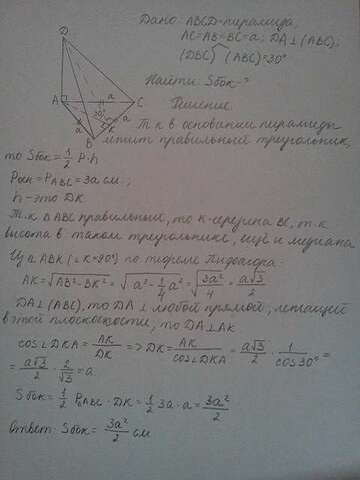 Дано: ABCD-пирамида,
AC=AB=BC=a; DA⊥(ABC);
(DBC) (ABC)=30°
Найти: Sбок-?
Решение.
Т.к в основании пирамиды
лежит правильный треугольник,
то Sбок=1/2 P·h
Pосн=P_ABC=3a см.;
h-это DK
Т.к. △ABC правильный, то K-середина BC, т.к
высота в таком треугольнике, ещё и медиана
Из △ABK (∠K=90°) по теореме Пифагора:
AK=√(AB²-BK²)=√(a²-1/4a²)=√(3a²/4)=a√3/2
DA⊥(ABC), то DA⊥ любой прямой, лежащей
в этой плоскости, то DA⊥AK
cos∠DKA=AK/DK => DK=AK/cos∠DKA=a√3/2·1/cos30°=
=a√3/2·2/√3=a
Sбок=1/2 P_ABC·DK=1/2 3a·a=3a²/2
Ответ: Sбок=3a²/2 см
D
A
a
C
30°
K
a
a
B